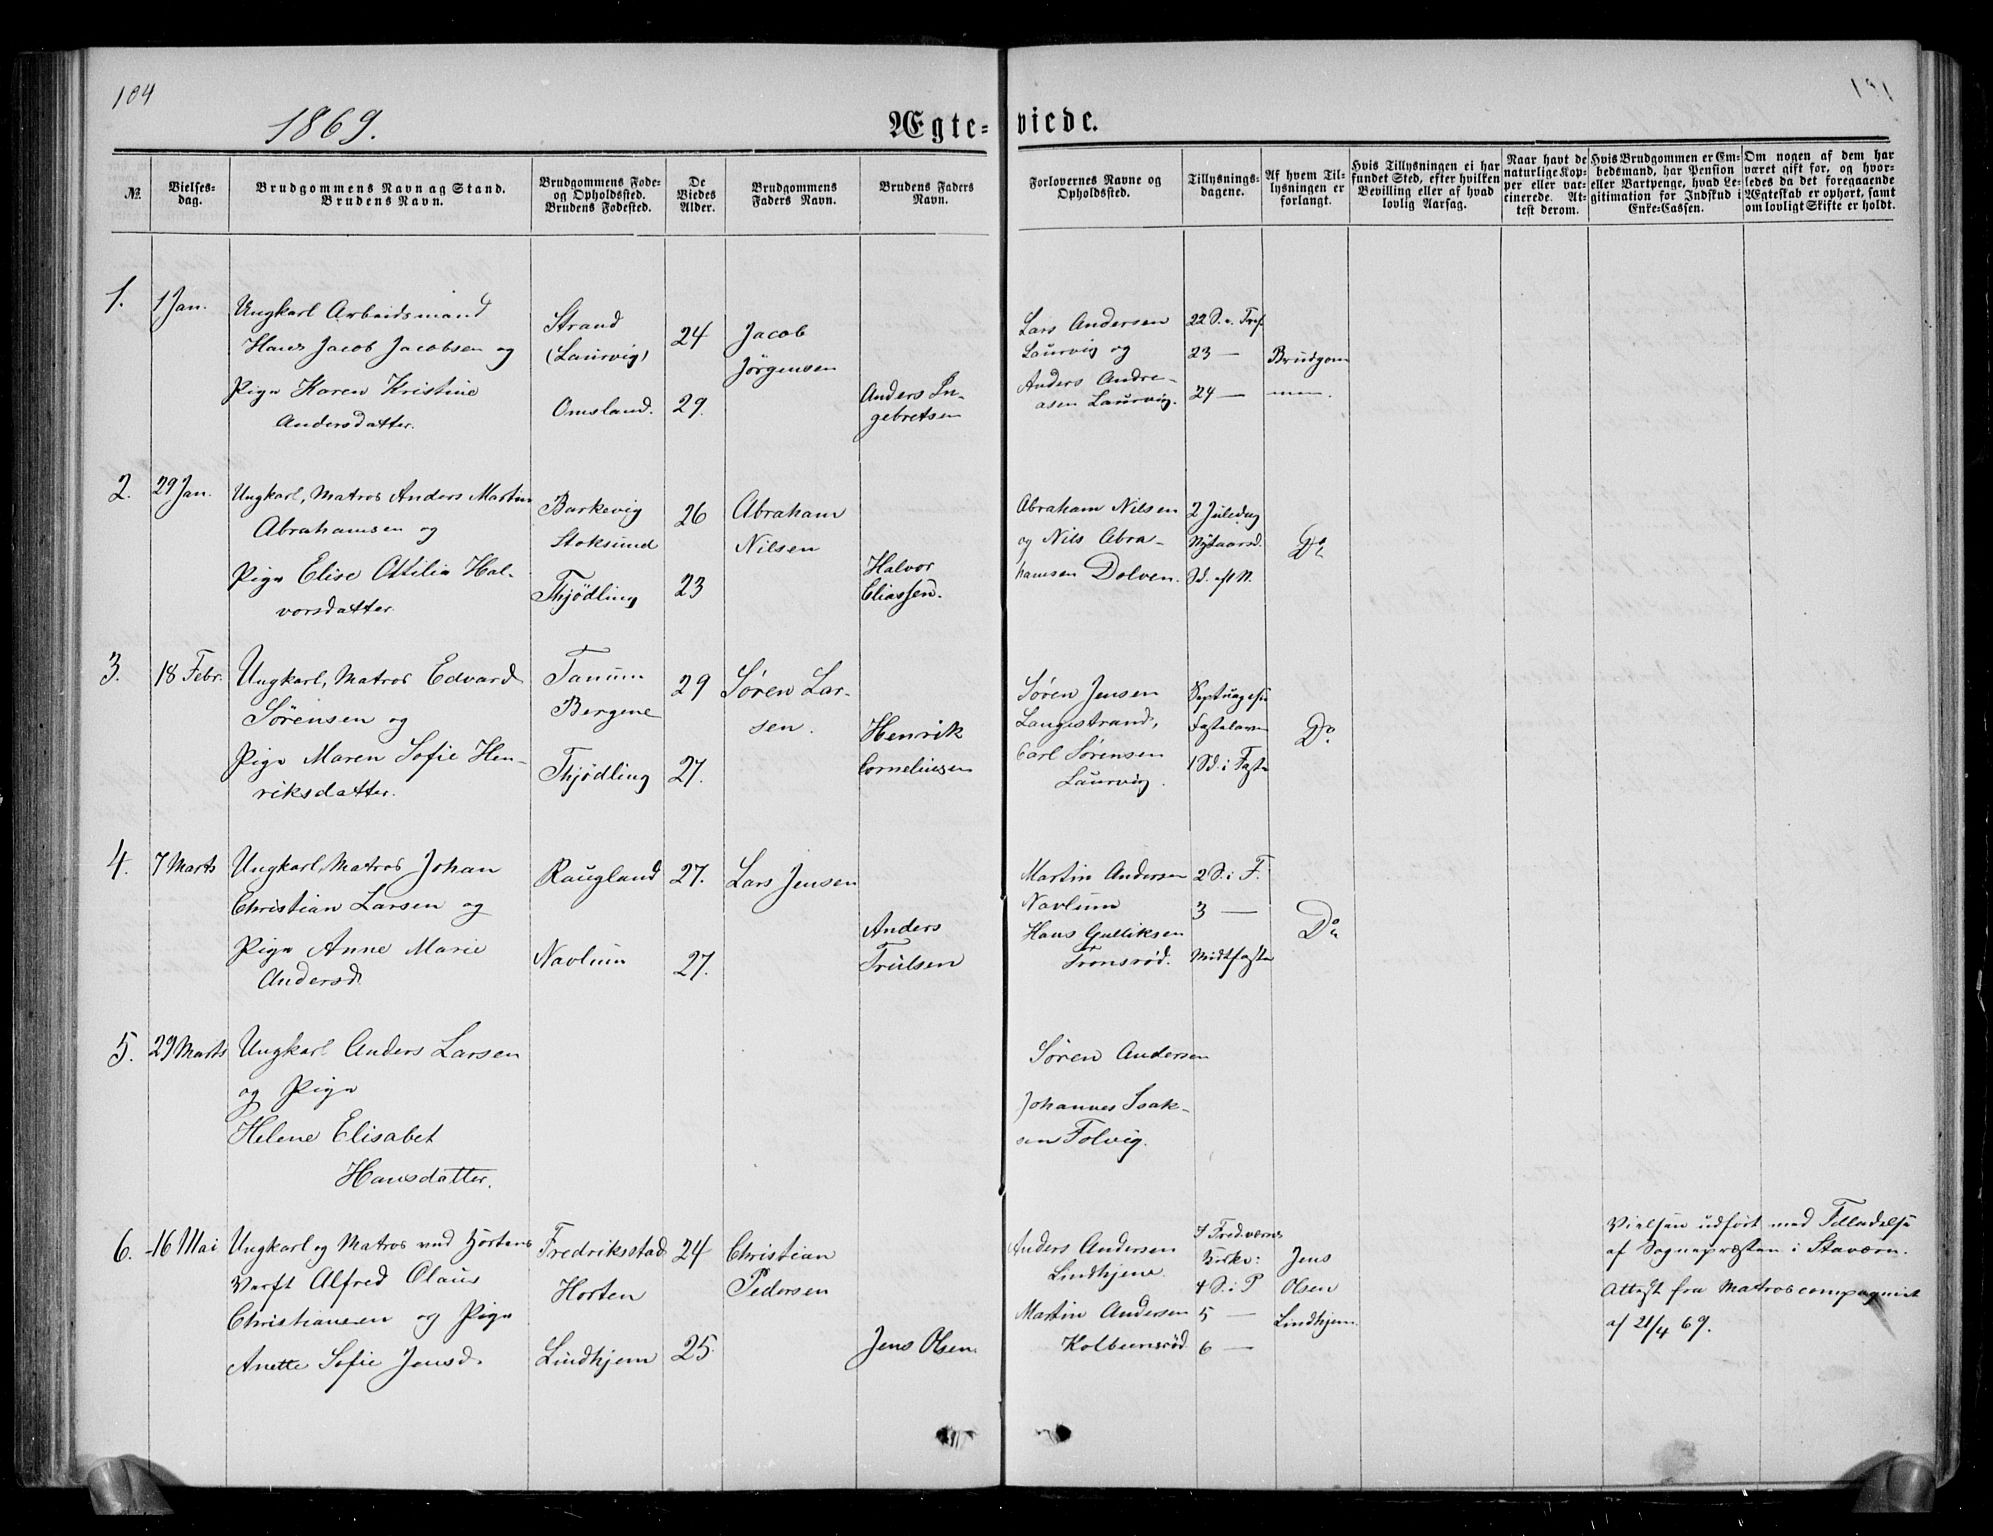 104
1869.
Ægte-viede.
№.
Vielses-
dag.
Brudgommens Navn ag Stand.
Brudens Navn.
Brudgommens Føde-
og Opholdssted.
Brudens Fødested.
De
Viedes
Alder.
Brudgommens
Faders Navn.
Brudens Faders
Navn.
Forlovernes Navne og
Opholdssted.
Tillysnings-
dagene.
Af hvem Til-
lysningen er
forlangt.
Hvis Tillysningen ei har
fundet Sted, efter hvilken
Bevilling eller af hvad
lovlig Aarsag.
Naar havt de
naturlige Kop-
per eller vac-
cinerede. At-
test derom.
Hvis Brudgommen er Em-
bedsmand, har Pension
eller Vartpenge, hvad Le-
gitimation for Indskud i
Enke-Cassen.
Om nogen af dem har
været gift før, og hvor-
ledes da det foregaaende
Ægteskab er ophørt, samt
om lovligt Skifte er holdt.
1.
1 Jan.
Ungkarl Arbeidsmand
Hans Jacob Jacobsen og
Pige Karen Kristine
Andersdatter.
Strand
(Laurvig)
Omsland.
24
29.
Jacob
Jörgensen
Anders In-
gebretsen
Lars Andersen
Laurvig og
Anders Andre-
asen Laurvig.
22 S. e. Tref.
23 —
24 —
Brudgom
men.
2.
29 Jan.
Ungkarl, Matros Anders Martin
Abrahamsen og
Pige Elise Ottilia Hal-
vorsdatter.
Barkevig
Stoksund
Thjödling
26
23
Abraham
Nilsen
Halvor
Eliassen.
Abraham Nilsen
og Nils Abra-
hamsen Dolven.
2 Juledag
Nytaarsd.
Sd. eft N.
Do
3.
18 Febr.
Ungkarl, Matros Edvard
Sørensen og
Pige Maren Sofie Hen-
riksdatter.
Tanum
Bergene
Thjödling
29
27.
Søren Lar-
sen.
Henrik
Corneliusen
Søren Jensen
Langestrand,
Carl Sørensen
Laurvig.
Septuagesu
Fastelaven
1 Sd. i Faste
Do
4.
7 Marts
Ungkarl, Matros Johan
Christian Larsen og
Pige Anne Marie
Andersd.
Raugland
Navlum
27.
27.
Lars Jensen
Anders
Trulsen
Martin Andersen
Navlum
Hans Gulliksen
Tronsrød.
2 S. i F.
3 —
Midtfaste
Do
5.
29 Marts
Ungkarl Anders Larsen
og Pige
Helene Elisabet
Hansdatter.
Søren Andersen
Johannes Isak-
sen Folvig.
6.
16 Mai
Ungkarl og Matros ved Hortens
Verft Alfred Olaus
Christiansen og Pige
Anette Sofie Jensd.
Fredriksstad
Horten
Lindhjem
24
25
Christian
Pedersen
Jens Olsen
Anders Andersen
Lindhjem.
Martin Andersen
Kolbeensrød
I Fredværns
Kirke:
4 S. i P
5 —
6 —
Jens
Olsen
Lindhjem.
Vielsen udført med Tilladelse
af Sognepræsten i Staværn.
Attest fra Matroscompagniet
af 21/4 69.